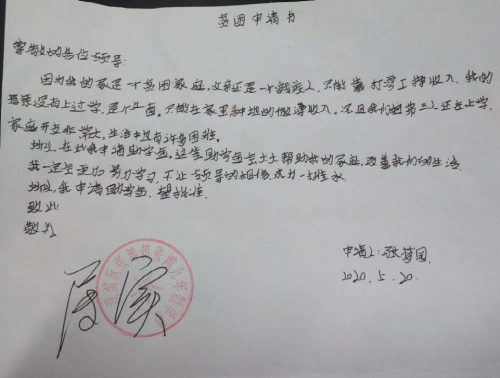 贫困申请书
尊敬的各位领导:
因为我的家是一个贫困家庭,父亲还是一个残疾人,只能靠打零工挣收入,我的
母亲没有上过学,是个文盲。只能在家里种地的微薄收入。还且我们姐弟三人还在上学,
家庭开支非常大,生活中还有许多困难。
所以,在此我申请助学金,这笔助学金会大大帮助我的家庭,改善我们的生活
我一定会更加努力学习,不让领导的相信,成为一
所以我申请助学金,望批准。
致此
敬礼
申请人:张梦园
2020.5.20.
属实